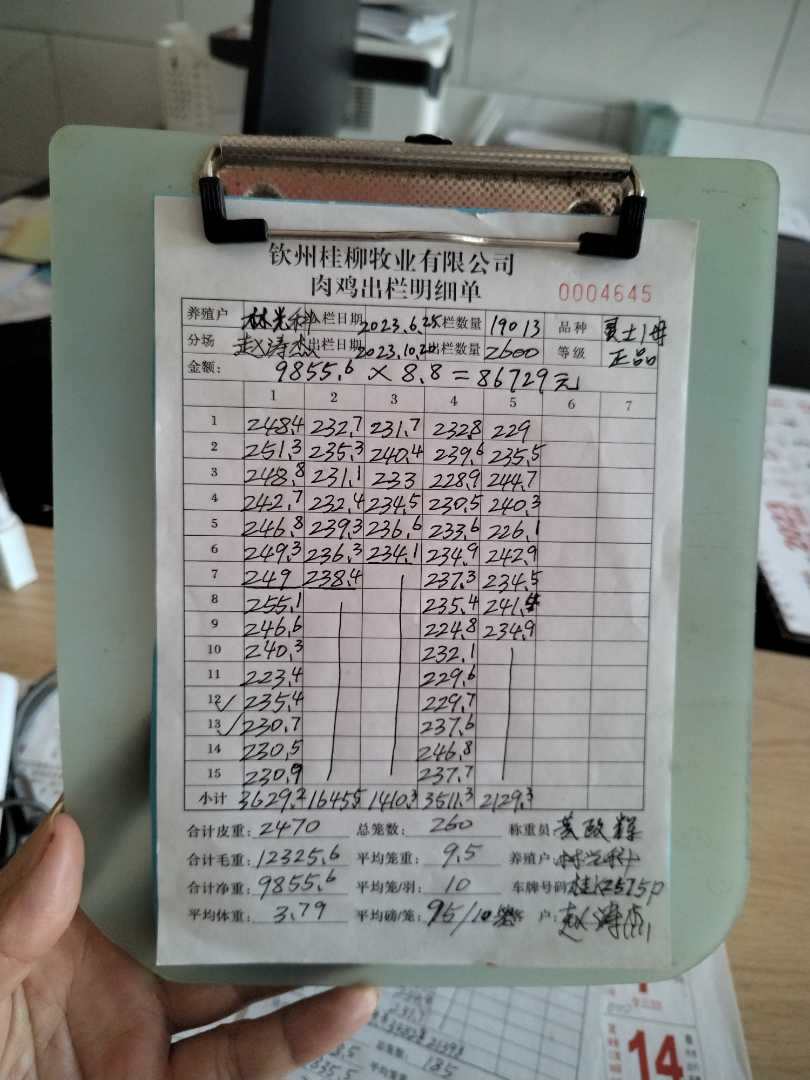 钦州桂柳牧业有限公司
肉鸡出栏明细单
0004645
养殖户 林光科 入栏日期 2023.6.25 入栏数量 19013 品种
分场 赵涛杰 出栏日期 2023.10.20 出栏数量 2600 等级 正品
金额: 9855.6 × 8.8 = 86729元
1 2 3 4 5 6 7
1 248.4 232.7 231.7 232.8 229
2 251.3 235.3 240.4 239.6 235.5
3 248.8 231.1 233 228.9 244.7
4 242.7 232.4 234.5 230.5 240.3
5 246.8 239.3 236.6 233.6 226.1
6 249.3 236.3 234.1 234.9 242.9
7 249 238.4 237.3 234.5
8 255.1 235.4 241.4
9 246.6 224.8 234.9
10 240.3 232.1
11 223.4 229.6
12 235.4 229.7
13 230.7 237.6
14 230.5 246.8
15 230.9 237.7
小计 3629.2 1645.5 1410.3 3511.3 2129.3
合计皮重: 2470 总笼数: 260 称重员
合计毛重: 12325.6 平均笼重: 9.5 养殖户 林光科
合计净重: 9855.6 平均笼/羽: 10 车牌号码
平均体重: 3.79 平均磅/笼: 95/10笼 客户: 赵涛杰
总笼数: 185
14